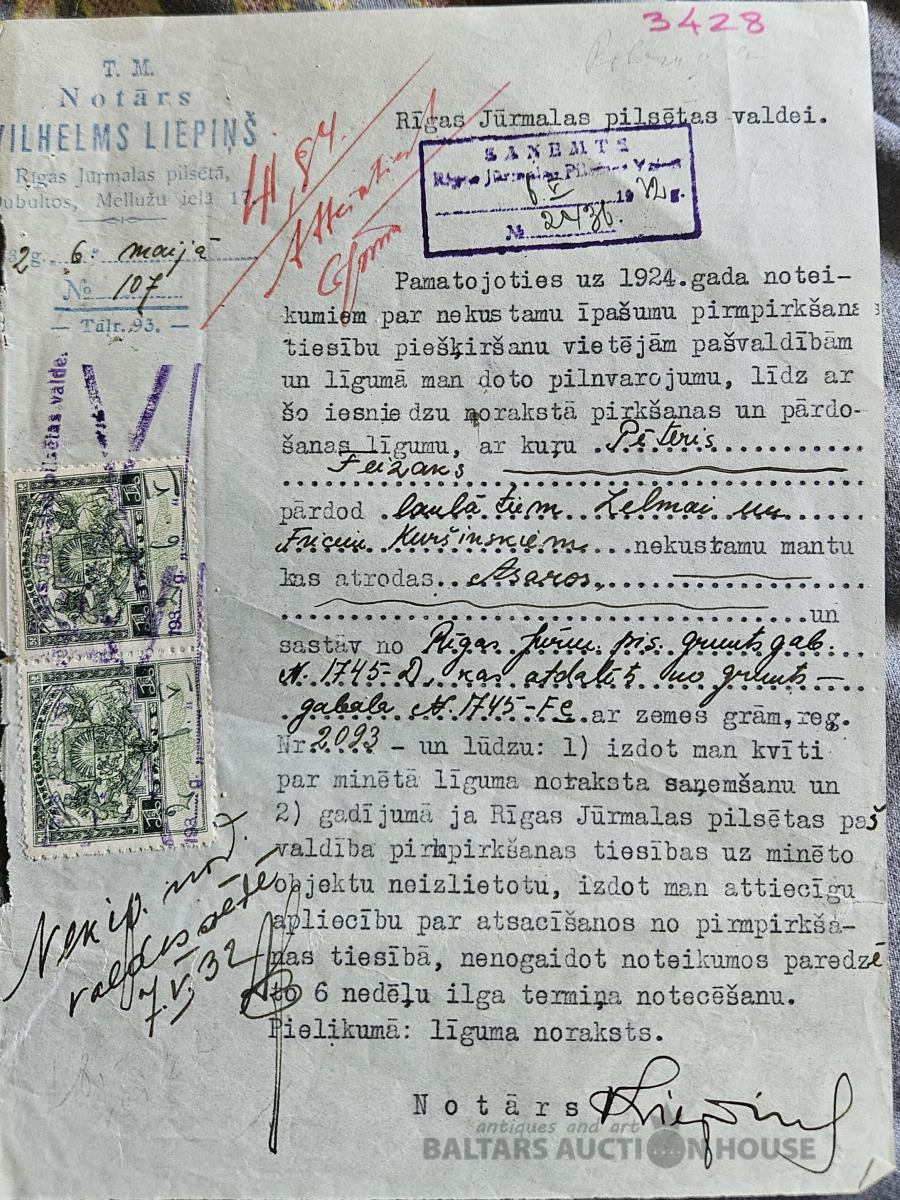 3428
T. M.
Notārs
VILHELMS LIEPIŅŠ
Rīgas Jūrmalas pilsētā,
Dubultos, Mellužu ielā 17
2 g. 6. maijā
№ 107
— Tālr. 93. —
Rīgas Jūrmalas pilsētas valdei.
SAŅEMTS
Rīgas Jūrmalas Pilsētas Valdē
6 V 1932 g.
№ 2436.
Pamatojoties uz 1924.gada notei-
kumiem par nekustamu īpašumu pirmpirkšanas
tiesību piešķiršanu vietējām pašvaldībām
un līgumā man doto pilnvarojumu, līdz ar
šo iesniedzu norakstā pirkšanas un pārdo-
šanas līgumu, ar kuŗu Pēteris
Feizaks
pārdod laulātiem Zelmai un
Fricim Kuršinskiem nekustamu mantu
kas atrodas Asaros,
un
sastāv no Rīgas Jūrm. pils. grunts gab.
N. 1745-D, kas atdalīts no grunts-
gabala N. 1745-Fc ar zemes grām,reg.
Nr.2093 - un lūdzu: 1) izdot man kvīti
par minētā līguma noraksta saņemšanu un
2) gadījumā ja Rīgas Jūrmalas pilsētas paš
valdība pirmpirkšanas tiesības uz minēto
objektu neizlietotu, izdot man attiecīgu
apliecību par atsacīšanos no pirmpirkša-
nas tiesībā, nenogaidot noteikumos paredzē
to 6 nedēļu ilga termiņa notecēšanu.
Pielikumā: līguma noraksts.
Notārs
pilsētas valde.
1 1
6 V
193 2 g.
1 1
6 V
193 2 g.
Nekip. nod.
valdes sēdē
7.V.32
antiques and art
BALTARS AUCTION HOUSE